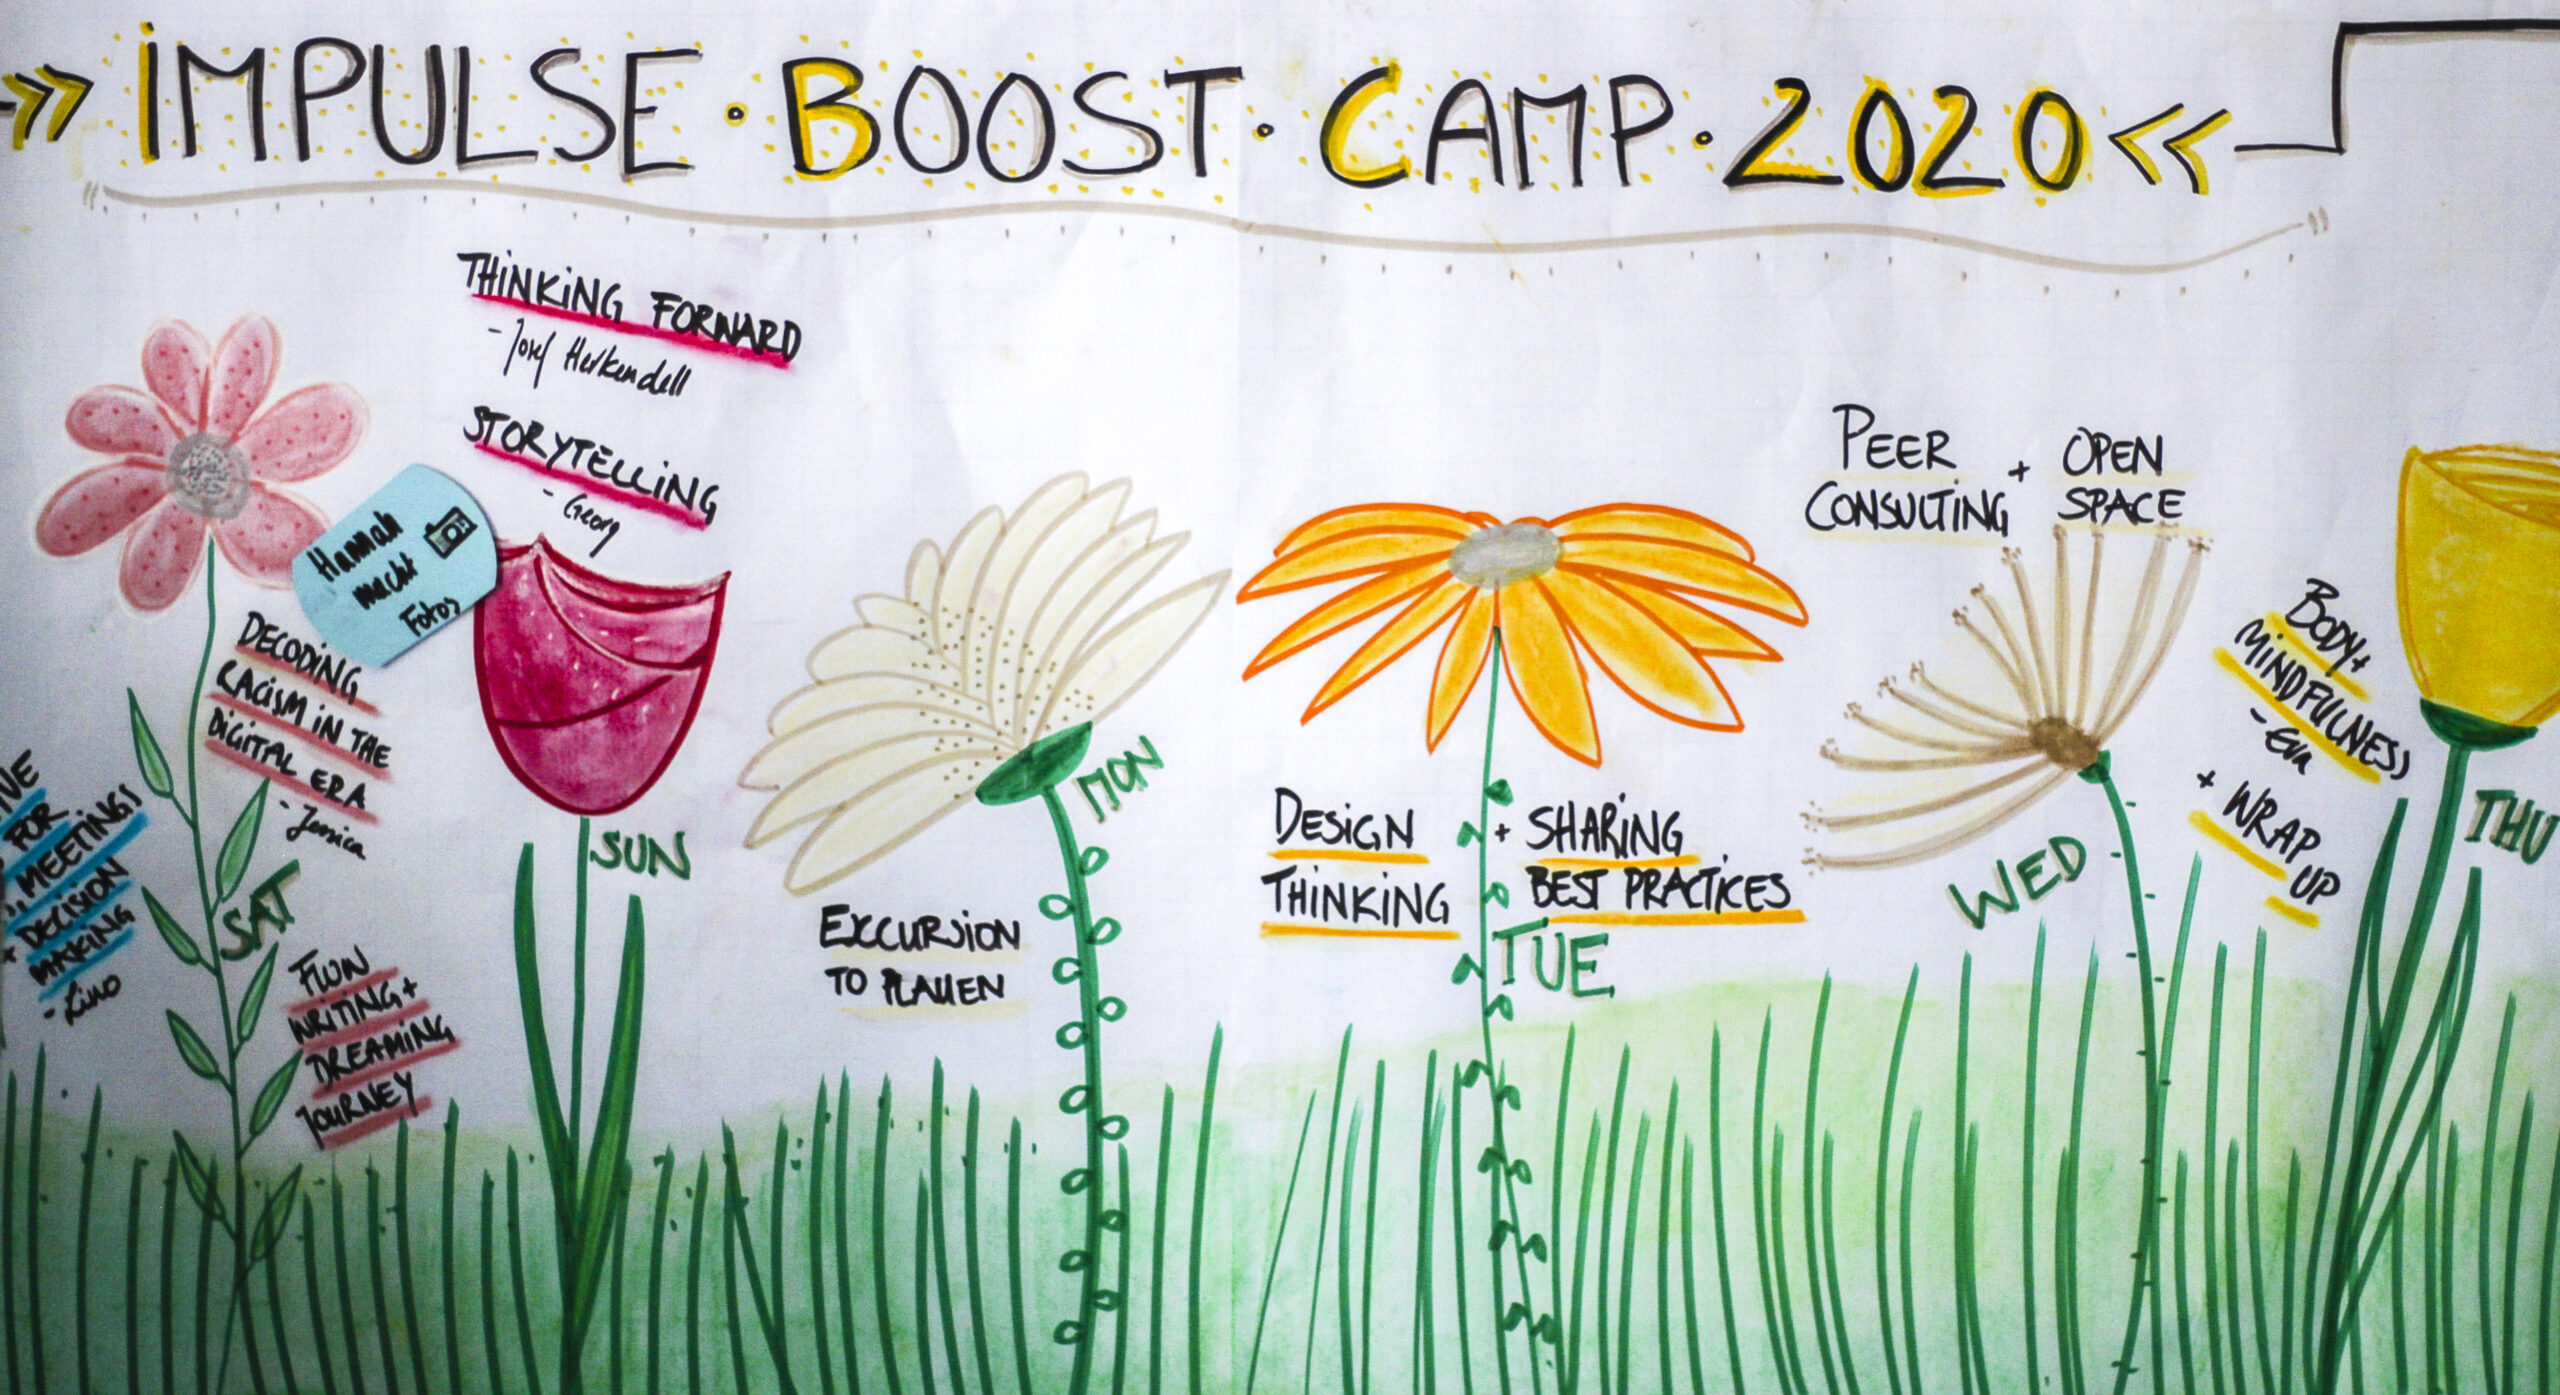 IMPULSE · BOOST · CAMP · 2020
THINKING FORWARD
- Josef Herkendell
STORYTELLING
- Georg
Hannah
macht
Fotos
DECODING
RACISM IN THE
DIGITAL ERA
- Jessica
FOR
MEETINGS
+ DECISION
MAKING
- Lino
SAT
FUN
WRITING +
DREAMING
JOURNEY
SUN
MON
EXCURSION
TO PLAUEN
DESIGN
THINKING
+ SHARING
BEST PRACTICES
TUE
PEER
CONSULTING
+ OPEN
SPACE
WED
BODY +
MINDFULNESS
- Eva
+ WRAP
UP
THU